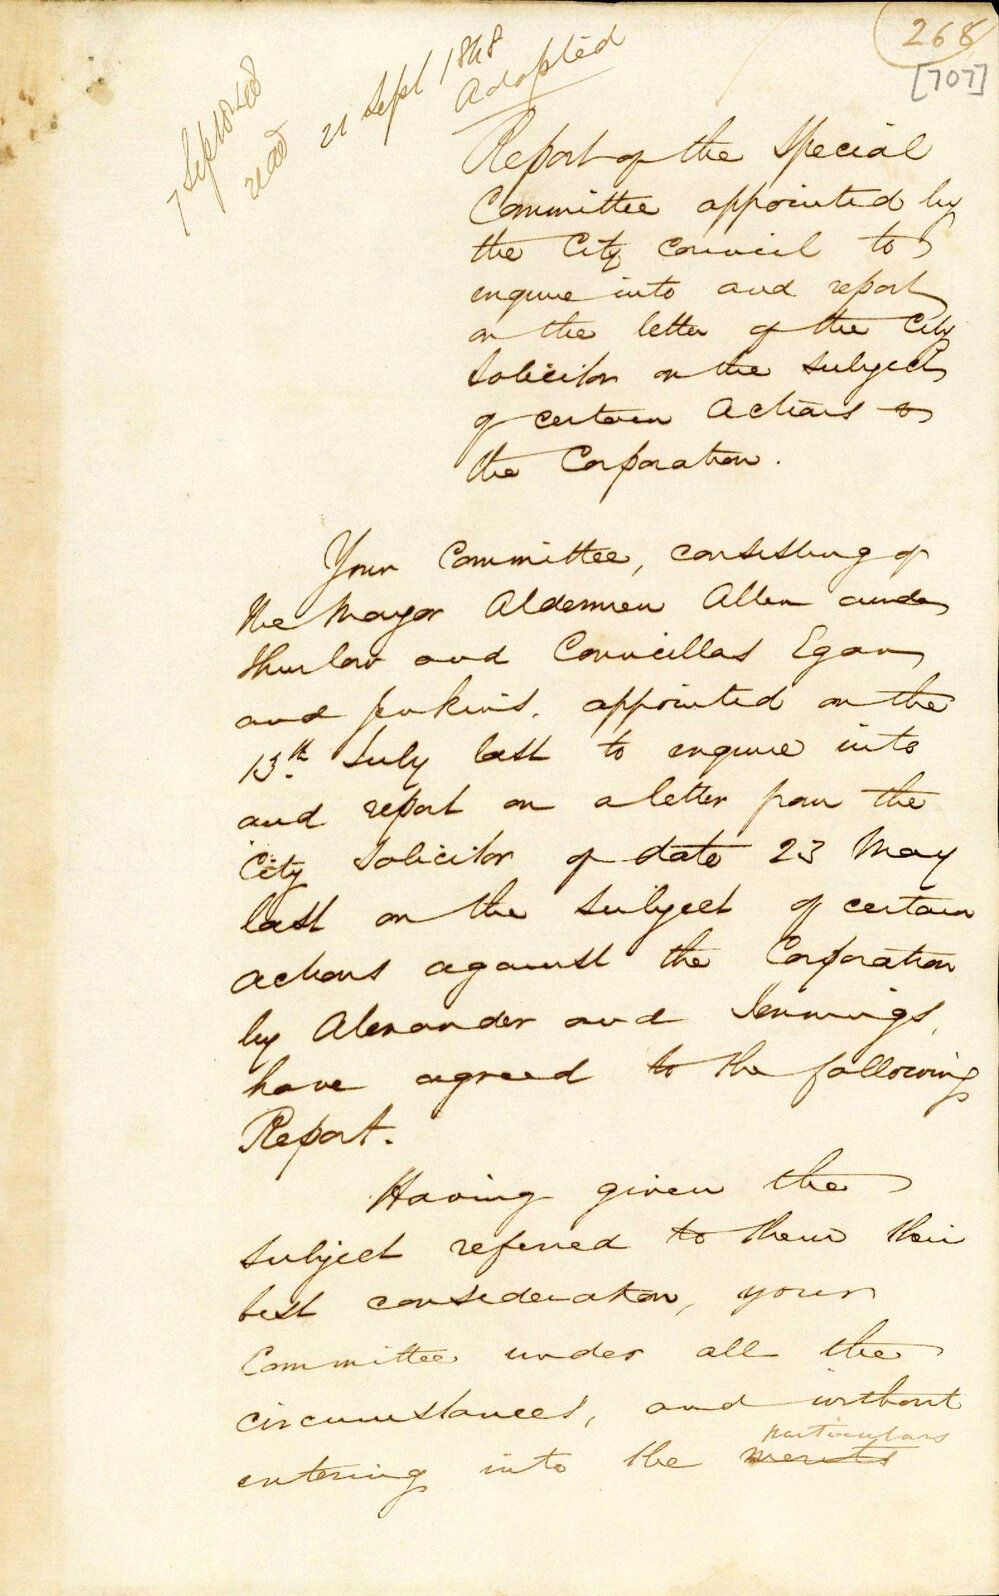 268
[707]
7 Sept 1848
read
21 Sept 1848
Adopted
Report of the Special
Committee appointed by
the City Council to
enquire into and report
on the letter of the City
Solicitor on the subject
of certain Actions
the Corporation.
Your Committee, consisting of
the Mayor Aldermen Allen and
Thurlow and Councillors Egan
and Jenkins, appointed on the
13th July last to enquire into
and report on a letter from the
City Solicitor of date 23 May
last on the subject of certain
actions against the Corporation
by Alexander and Jennings,
have agreed to the following
Report.
Having given the
subject referred to them their
best consideration, your
Committee under all the
circumstances, and without
particulars
entering into the merits